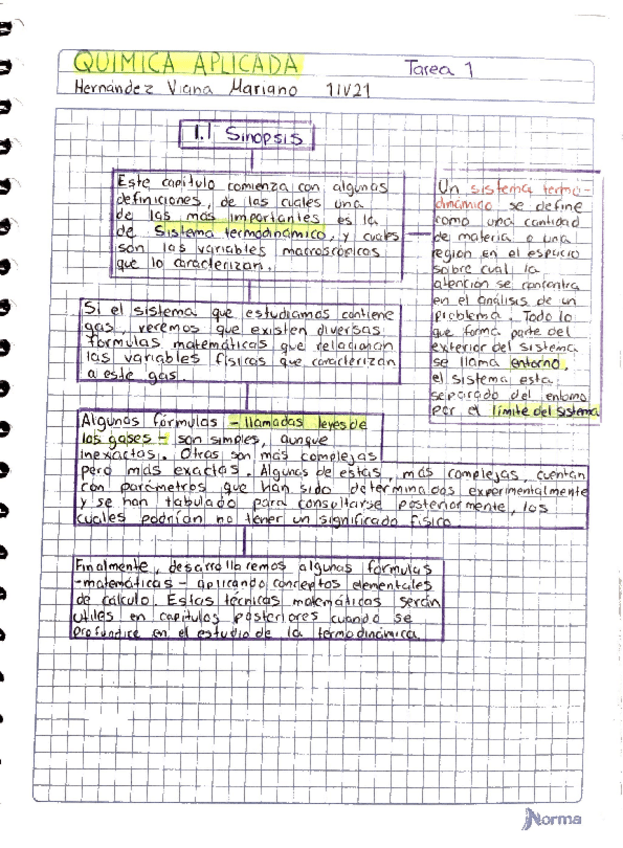 QUIMICA APLICADA
Tarea 1
Hernández Viana Mariano 1IV21
1.1 Sinopsis
Este capitulo comienza con algunas
definiciones, de las cuales una
de las mas importantes es la
de Sistema termodinámico, y cuales
son las variables macroscópicas
que lo caracterizan.
Un sistema termo-
dinámico se define
como una cantidad
de materia o una
region en el espacio
sobre cual la
atención se concentra
en el análisis de un
problema. Todo lo
que forma parte del
exterior del sistema
se llama entorno,
el sistema esta
separado del entorno
por el límite del sistema
Si el sistema que estudiamos contiene
gas, veremos que existen diversas
formulas matemáticas que relacionan
las variables físicas que caracterizan
a este gas.
Algunas fórmulas - llamadas leyes de
los gases - son simples, aunque
inexactas. Otras son más complejas
pero más exactas. Algunas de estas, más complejas, cuentan
con parámetros que han sido determinados experimentalmente
y se han tabulado para consultarse posteriormente, los
cuales podrían no tener un significado físico
Finalmente, desarrollaremos algunas fórmulas
-matemáticas - aplicando conceptos elementales
de cálculo. Estas técnicas matemáticas serán
utiles en capítulos posteriores cuando se
profundice en el estudio de la termodinámica
Norma